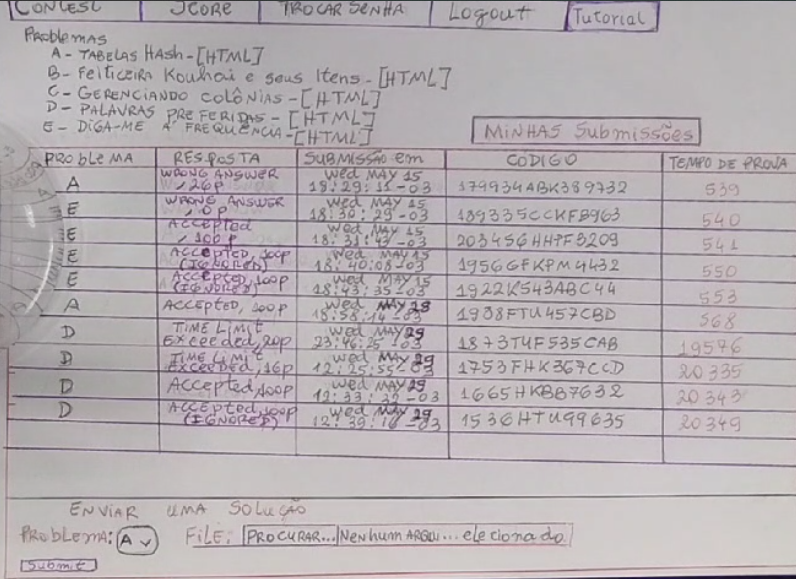 CONTEST SCORE TROCAR SENHA Logout Tutorial
PROBLEMAS
A - TABELAS HASH - [HTML]
B - Feiticeira Kouhai e seus Itens - [HTML]
C - GERENCIANDO COLÔNIAS - [HTML]
D - PALAVRAS PREFERIDAS - [HTML]
E - DIGA-ME A FREQUÊNCIA - [HTML]
MINHAS Submissões
PROBLEMA RESPOSTA SUBMISSÃO em CÓDIGO TEMPO DE PROVA
A WRONG ANSWER, 26p Wed MAY 15 18:29:11-03 179934ABK389732 539
E WRONG ANSWER, 0p Wed MAY 15 18:30:29-03 189335CCKFB963 540
E Accepted, 100p Wed MAY 15 18:31:43-03 203456HHPF3209 541
E Accepted, 100p (IGNORED) Wed MAY 15 18:40:08-03 19566FKPM4432 550
E Accepted, 100p (IGNORED) Wed MAY 15 18:43:35-03 1922K543ABC44 553
A ACCEPTED, 100p Wed MAY 29 18:58:14-03 1938FTU457CBD 568
D TIME LIMIT Exceeded, 20p Wed MAY 29 23:46:25-03 1873TUF535CAB 19576
D TIME LIMIT EXCEEDED, 16p Wed MAY 29 12:25:55-03 1753FHK367CCD 20335
D Accepted, 100p Wed MAY 29 12:33:29-03 1665HKBB7632 20343
D Accepted, 100p (IGNORED) Wed MAY 29 12:39:16-03 1536HTU99635 20349
ENVIAR UMA SOLUÇÃO
PROBLEMA: A FILE: PROCURAR... Nenhum ARQU... elecionado
Submit